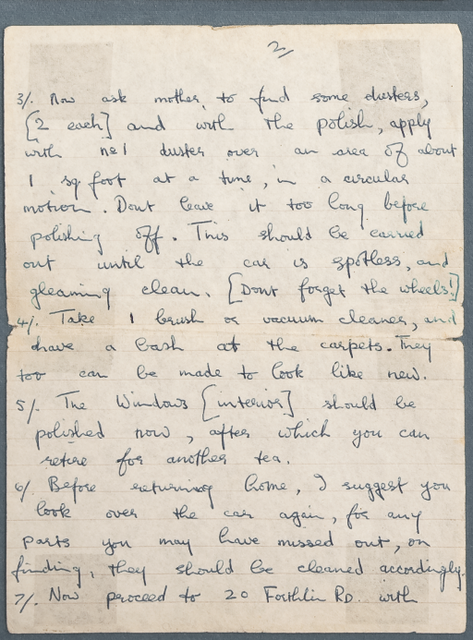 2/
3/. Now ask mother, to find some dusters,
[2 each] and with the polish, apply
with no1 duster over an area of about
1 sq foot at a time, in a circular
motion. Dont leave it too long before
polishing off. This should be carried
out until the car is spotless, and
gleaming clean. [Dont forget the wheels!]
4/. Take 1 brush or vacuum cleaner, and
have a bash at the carpets. They
too can be made to look like new.
5/. The Windows [interior] should be
polished now, after which you can
retire for another tea.
6/. Before returning home, I suggest you
look over the car again, for any
parts you may have missed out, on
finding, they should be cleaned accordingly.
7/. Now proceed to 20 Forthlin RD. with